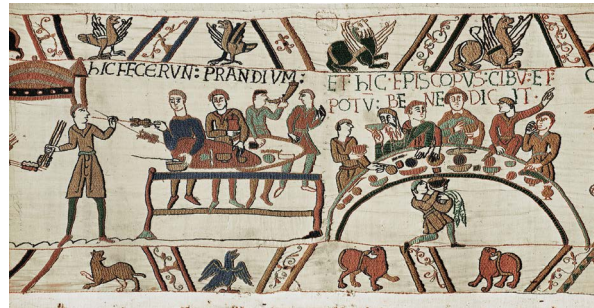 hIC FECERVN: PRANDIVM:
ET·hIC·EPISCOPVS·CIBV·ET·
POTV· BE NE DIC IT·